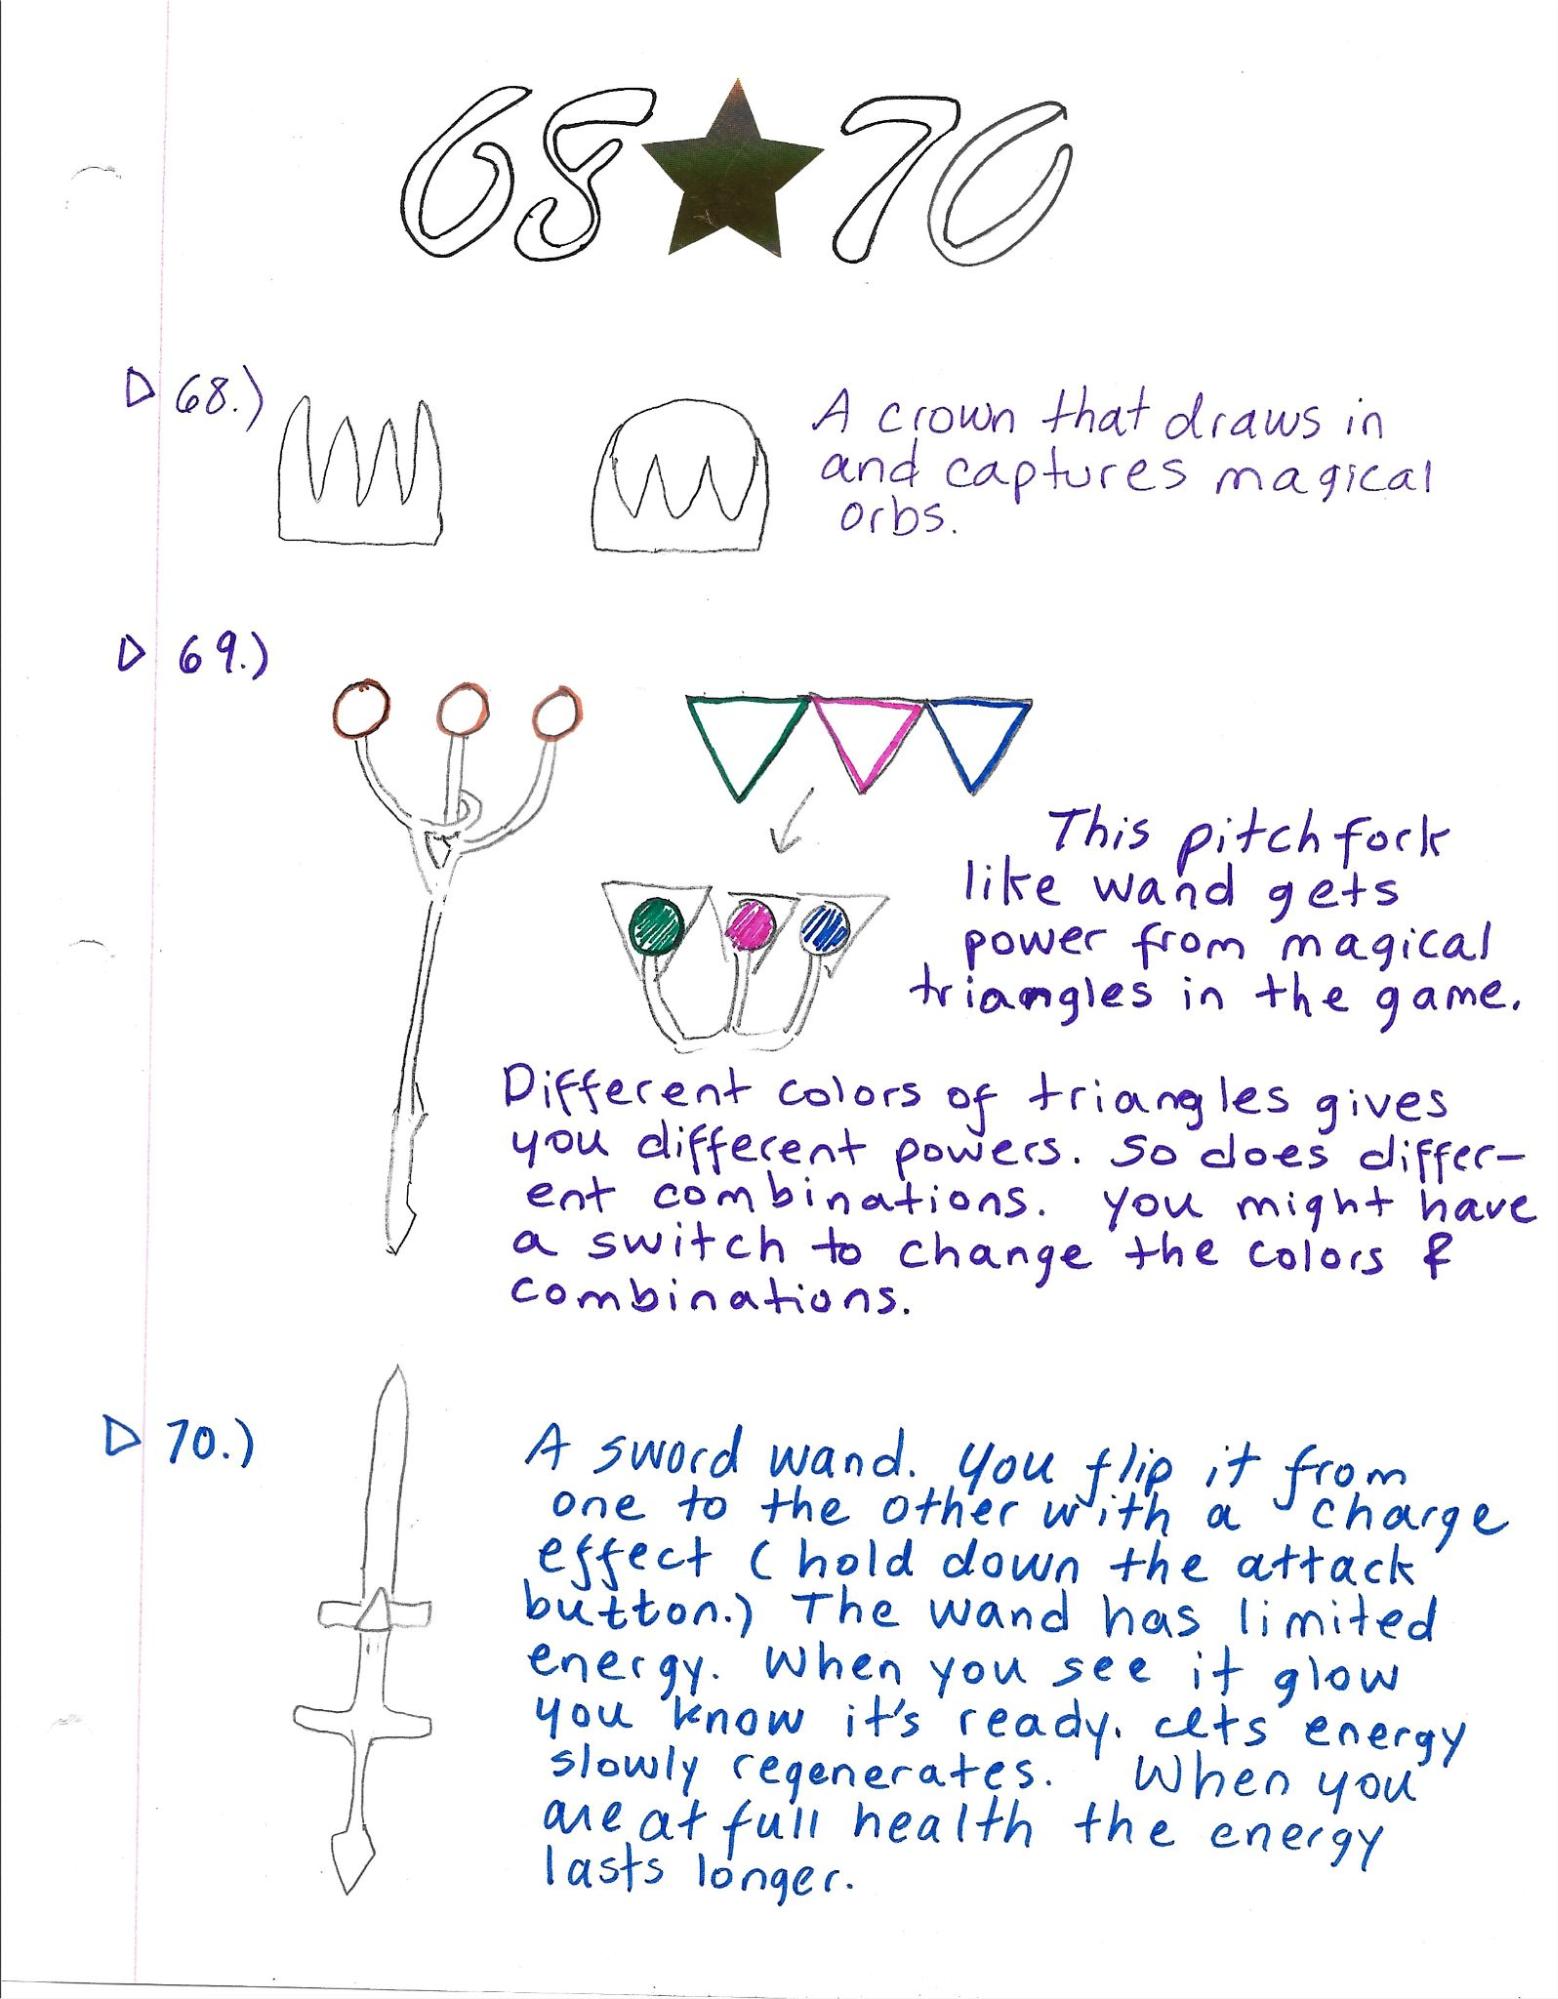 68 ★ 70
▷ 68.)
A crown that draws in
and captures magical
orbs.
▷ 69.)
This pitchfork
like wand gets
power from magical
triangles in the game.
Different colors of triangles gives
you different powers. So does differ-
ent combinations. You might have
a switch to change the colors &
combinations.
▷ 70.)
A sword wand. You flip it from
one to the other with a charge
effect (hold down the attack
button.) The wand has limited
energy. When you see it glow
you know it's ready. Its energy
slowly regenerates. When you
are at full health the energy
lasts longer.